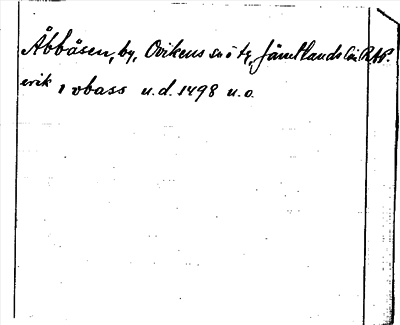 Åbbåsen, by, Ovikens sn o tg, Jämtlands län RAP.
erik i obass u.d. 1498 u.o.